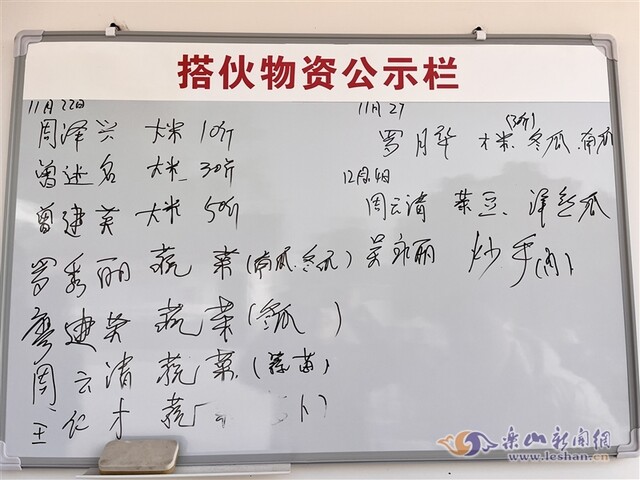 搭伙物资公示栏
11月22日
周泽兴 大米 10斤
曾述名 大米 30斤
曾建英 大米 50斤
罗秀丽 蔬菜(南瓜.冬瓜)
廖建英 蔬菜(冬瓜)
周云清 蔬菜(蒜苗)
王纪才 蔬
11月27
罗月华 大米(30斤) 冬瓜.南瓜
12月4日
周云清 菜豆、洋丝瓜
吴永丽 炒手(肉)
乐山新闻網
www.leshan.cn